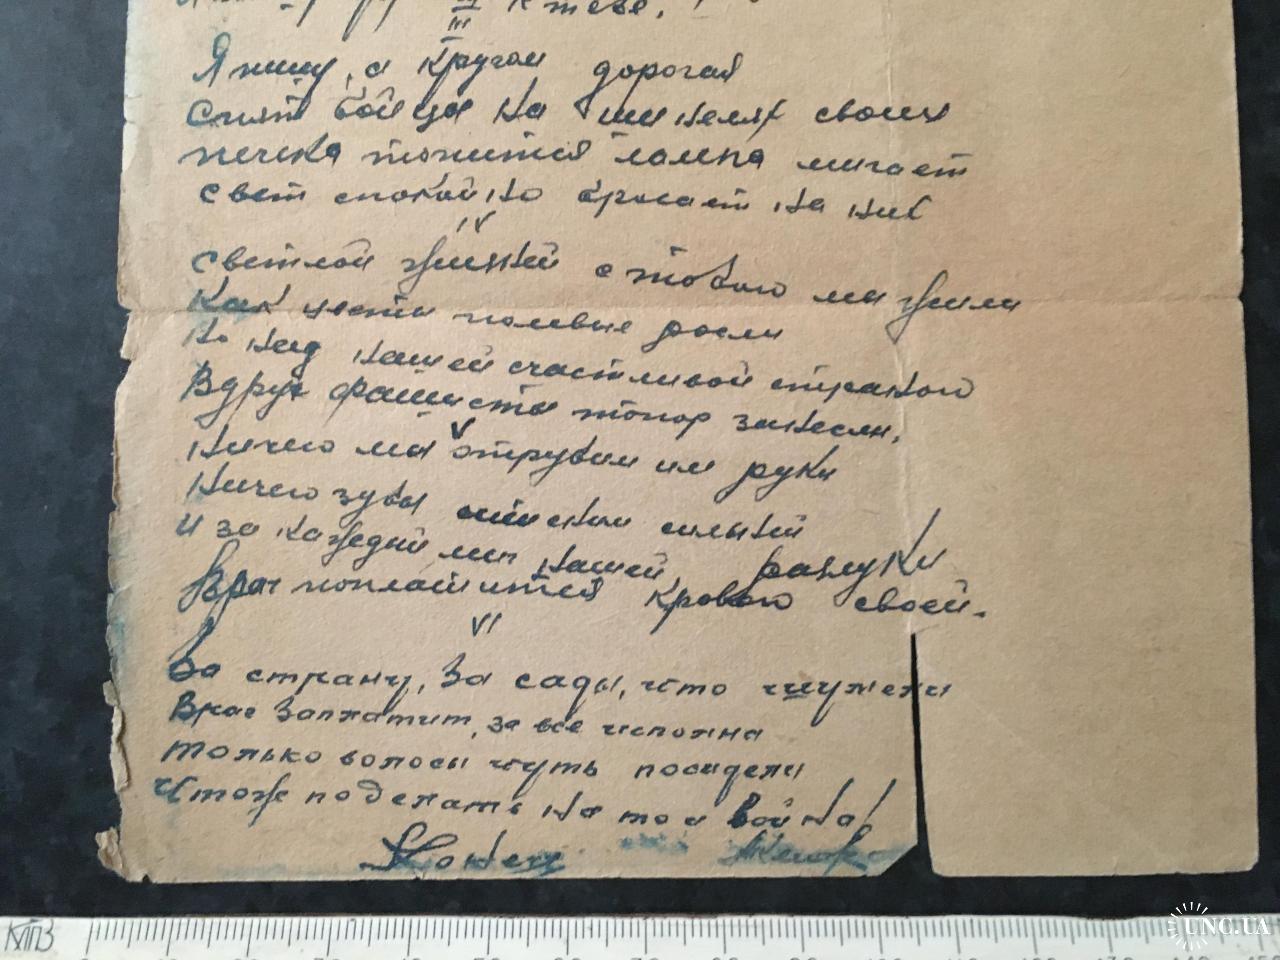 к тебе.
III
Я пишу, а кругом дорогая
Спят бойцы на шинелях своих
печка топится лампа мигает
свет спокойно бросает на них
IV
Светлой жизней с тобою мы жили
Как цветы полевые росли
Но над нашей счастливой страною
Вдруг фашисты топор занесли.
V
Ничего мы отрубим им руки
Ничего зубы стиснем сильней
И за каждый миг нашей, разлуки
Враг поплатится кровью своей.
VI
За страну, За сады, что шумели
Враг Заплатит, за все исполна
только волосы чуть поседели
Чтож поделать На то и война!
Конец
КТПЗ
UNC.UA